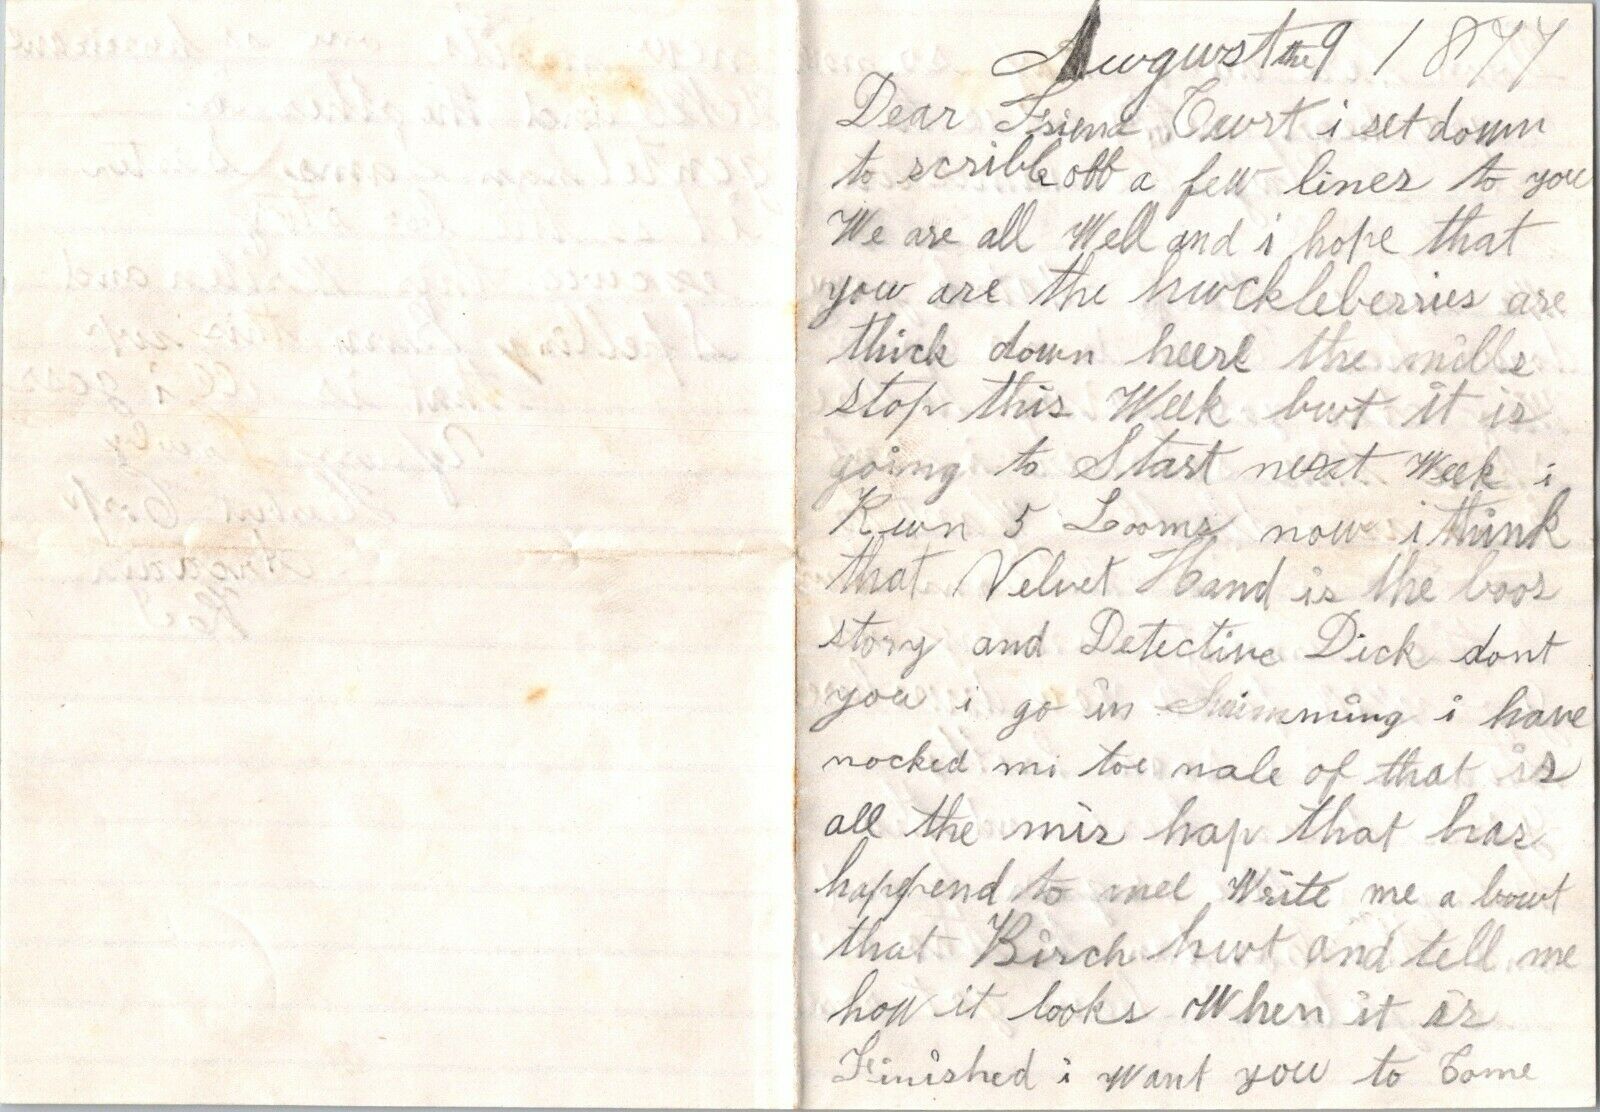 August the 9 1877
Dear Friend Curt i set down
to scribble obb a few lines to you
We are all Well and i hope that
you are the huckleberries are
thick down heere the mills
stop this Week but it is
going to Start next Week i
Run 5 Looms now i think
that Velvet Hand is the boos
story and Detective Dick dont
you i go in Swimming i have
nocked mi toe nale of that is
all the mis hap that has
happend to mee Write me a bout
that Birch hut and tell me
how it looks When it is
Finished i Want you to Come